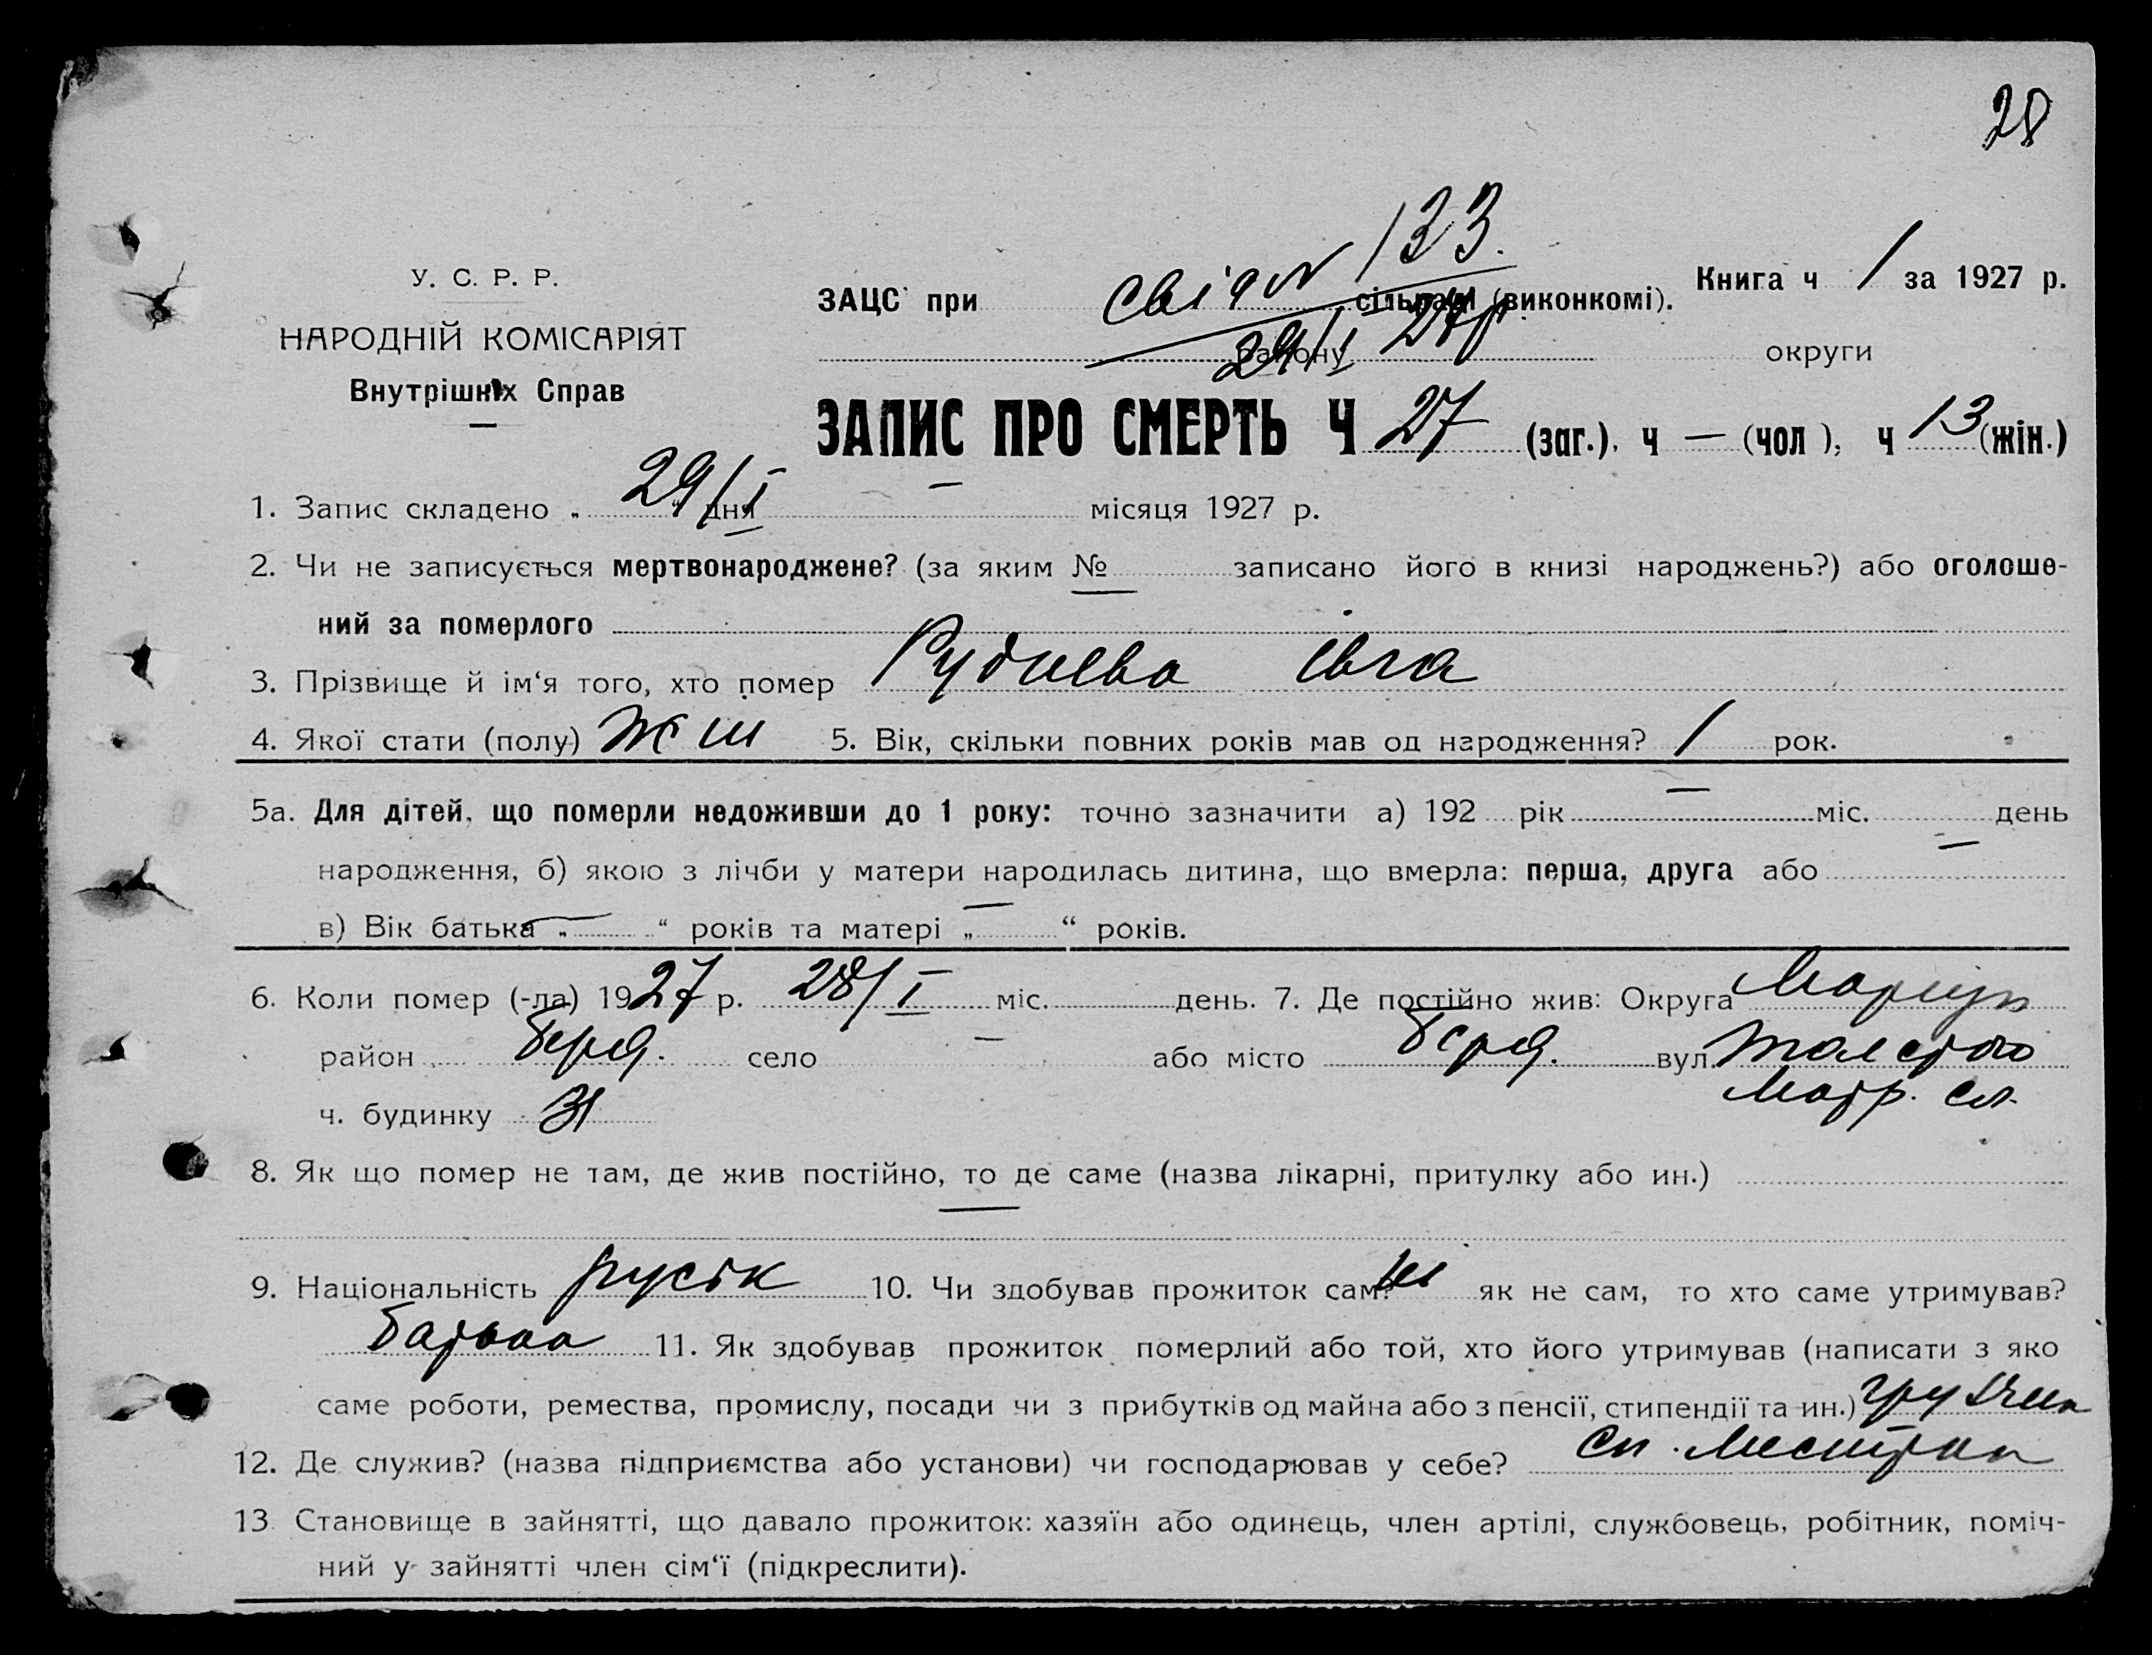 28
У. С. Р. Р.
НАРОДНІЙ КОМІСАРІЯТ
Внутрішніх Справ
Книга ч 1 за 1927 р.
ЗАЦС при свід № 133. сільраді (виконкомі).
29/I 27 р. району округи
ЗАПИС ПРО СМЕРТЬ Ч 27 (заг.), ч — (чол), ч 13 (жін.)
1. Запис складено „ 29/I “ дня — місяця 1927 р.
2. Чи не записується мертвонароджене? (за яким № записано його в книзі народжень?) або оголоше-
ний за померлого
3. Прізвище й ім‘я того, хто помер Руднева Івга
4. Якої стати (полу) жін 5. Вік, скільки повних років мав од народження? 1 рок.
5а. Для дітей, що померли недоживши до 1 року: точно зазначити а) 192 рік — міс. день
народження, б) якою з лічби у матери народилась дитина, що вмерла: перша, друга або —
в) Вік батька „ — “ років та матері „ — “ років.
6. Коли помер (-ла) 1927 р. 28/I міс. день. 7. Де постійно жив: Округа Маріуп
район Берд. село — або місто Берд. вул. Толстого
ч. будинку 31
8. Як що помер не там, де жив постійно, то де саме (назва лікарні, притулку або ин.)
—
9. Національність руськ 10. Чи здобував прожиток сам? ні як не сам, то хто саме утримував?
батько 11. Як здобував прожиток померлий або той, хто його утримував (написати з яко
саме роботи, ремества, промислу, посади чи з прибутків од майна або з пенсії, стипендії та ин.)
12. Де служив? (назва підприємства або установи) чи господарював у себе?
13 Становище в зайнятті, що давало прожиток: хазяїн або одинець, член артілі, службовець, робітник, поміч-
ний у зайнятті член сім‘ї (підкреслити).